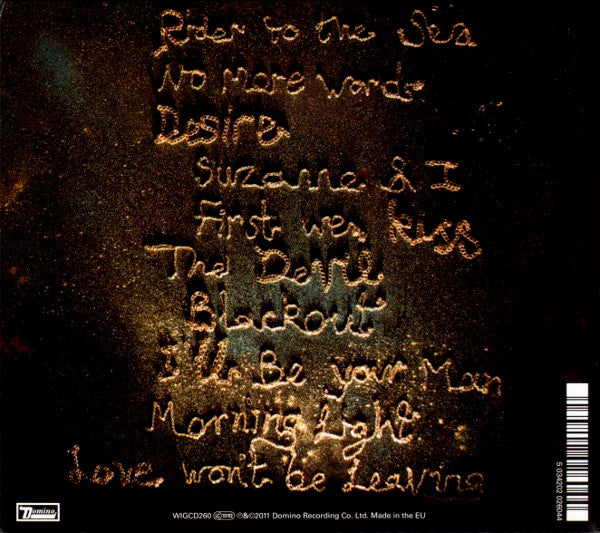 Rider to the Sea
No More Words
Desire
Suzanne & I
First we Kiss
The Devil
Blackout
I'll Be your Man
Morning Light
Love won't be Leaving
5 034202 026044
Domino
WIGCD260 LC 1092 ℗&©2011 Domino Recording Co. Ltd. Made in the EU